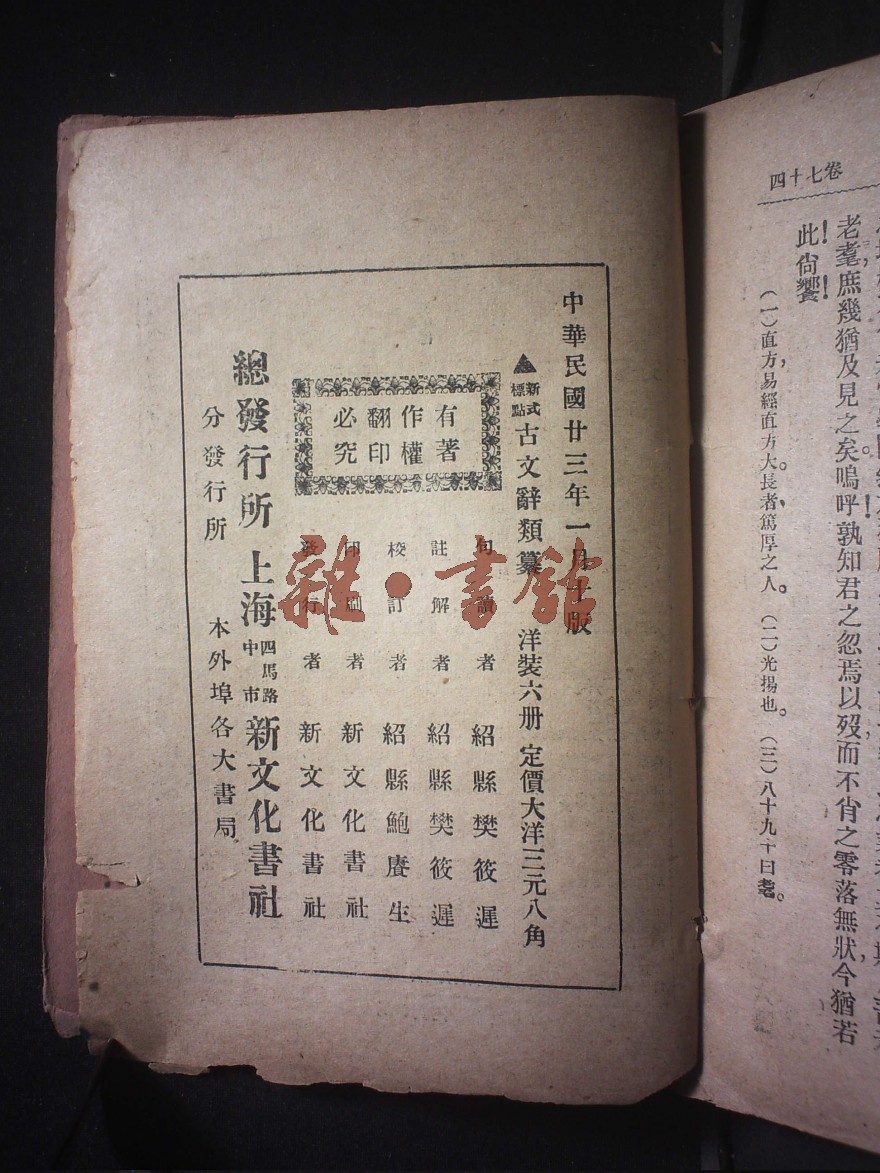 四十七卷
老耄庶幾猶及見之矣。嗚呼！孰知君之忽焉以歿，而不肖之零落無狀，今猶若
此！尙饗！
（一）直方，易經直方大。長者，篤厚之人。（二）光揚也。（三）八十九十曰耄。
中華民國廿三年一月十版
▲新式標點古文辭類纂 洋裝六册 定價大洋三元八角
有著
作權
翻印
必究
句讀者 紹縣樊筱遲
註解者 紹縣樊筱遲
校訂者 紹縣鮑賡生
印刷者 新文化書社
發行者 新文化書社
總發行所 上海四馬路中市新文化書社
分發行所 本外埠各大書局
雜·書館